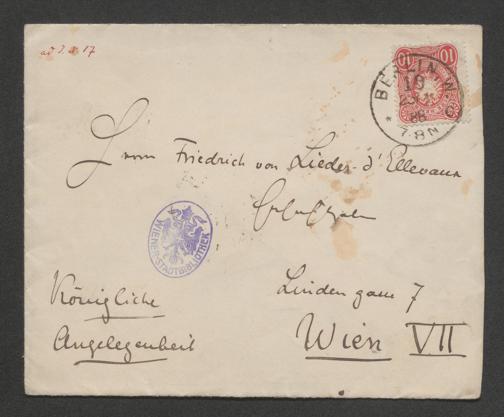 ad 3. a. 17
10 10
BERLIN, W.
19
88
7-8 N
Herrn Friedrich von Lieder-d'Ellevaux
WIENER STADTBIBLIOTHEK
Königliche
Angelegenheit
Lindengasse 7
Wien VII